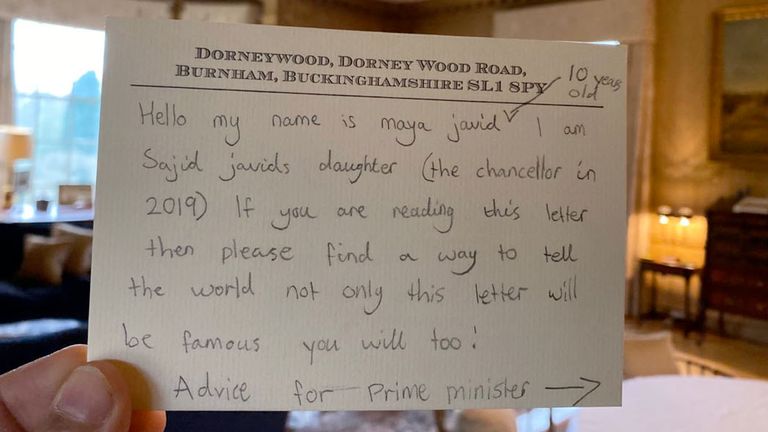 DORNEYWOOD, DORNEY WOOD ROAD,
BURNHAM, BUCKINGHAMSHIRE SL1 8PY
10 years
old
Hello my name is maya javid I am
Sajid javids daughter (the chancellor in
2019) If you are reading this letter
then please find a way to tell
the world not only this letter will
be famous you will too!
Advice for prime minister →